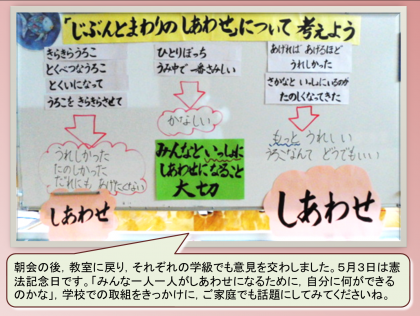 「じぶんとまわりのしあわせ」について考えよう
きらきらうろこ
とくべつなうろこ
とくいになって
うろこを きらきらさせて
うれしかった
たのしかった
だれにも あげたくない
しあわせ
ひとりぼっち
うみ中で 一番さみしい
かなしい
みんなといっしょに
しあわせになること
大切
あげれば あげるほど
うれしかった
さかなと いっしょにいるのが
たのしくなってきた
もっと うれしい
うろこなんて どうでもいい
しあわせ
朝会の後，教室に戻り，それぞれの学級でも意見を交わしました。５月３日は憲
法記念日です。「みんな一人一人がしあわせになるために，自分に何ができる
のかな」，学校での取組をきっかけに，ご家庭でも話題にしてみてくださいね。